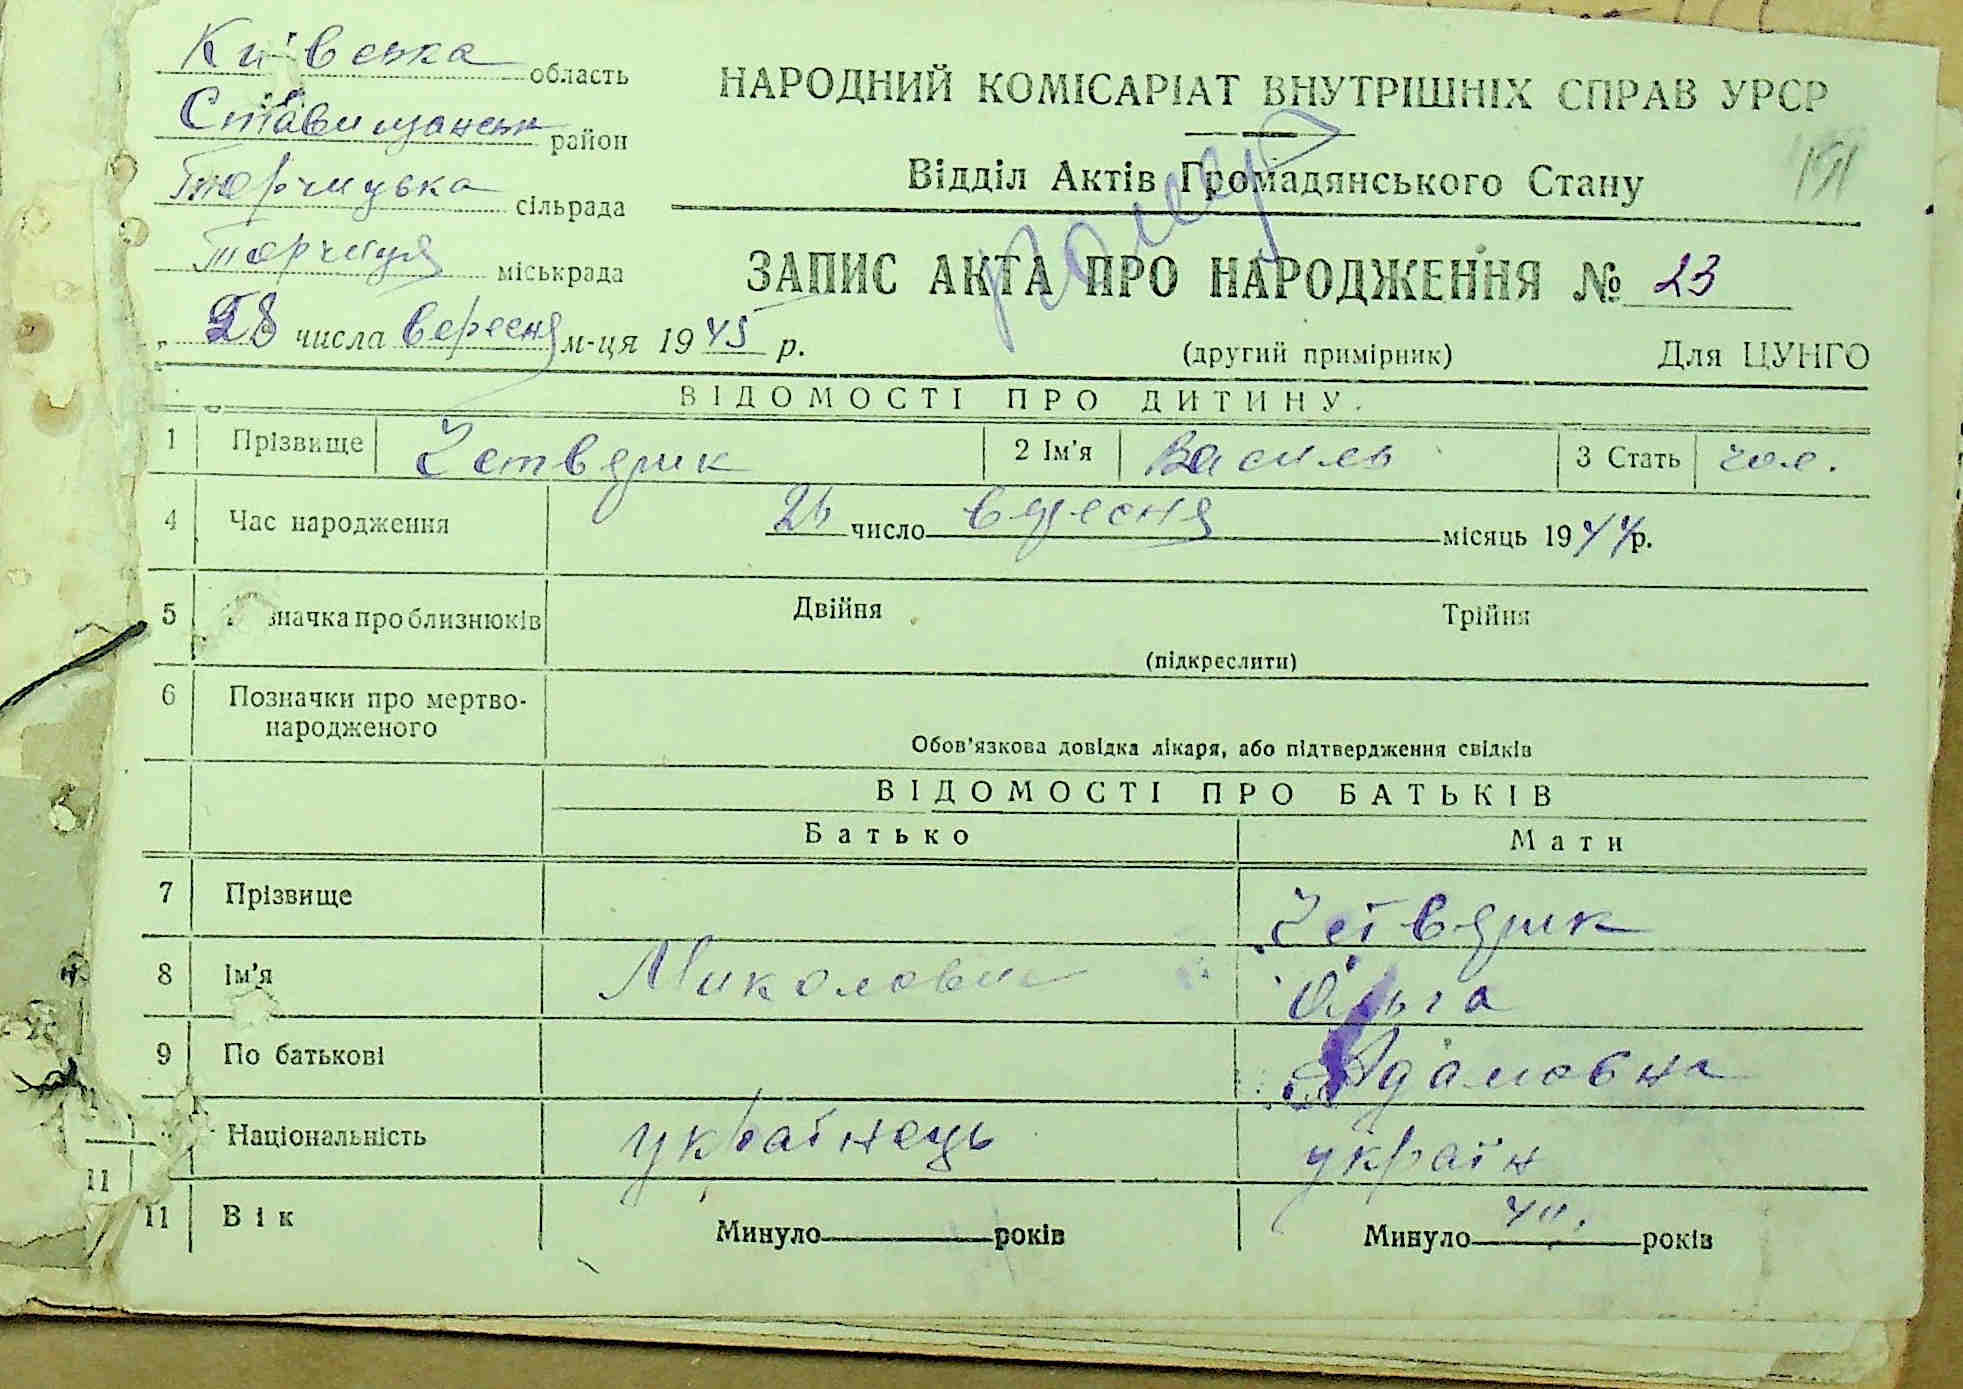 Київська область
Ставищанськ район
Торчицька сільрада
Торчиця міськрада
„ 28 числа вересня м-ця 1945 р.
НАРОДНИЙ КОМІСАРІАТ ВНУТРІШНІХ СПРАВ УРСР
Відділ Актів Громадянського Стану
191
ЗАПИС АКТА ПРО НАРОДЖЕННЯ № 23
(другий примірник) Для ЦУНГО
ВІДОМОСТІ ПРО ДИТИНУ.
1 Прізвище Четверик 2 Ім'я Василь 3 Стать чол.
4 Час народження 26 число вересня місяць 1944р.
5 значка про близнюків Двійня Трійня
(підкреслити)
6 Позначки про мертво-
народженого
Обов'язкова довідка лікаря, або підтвердження свідків
ВІДОМОСТІ ПРО БАТЬКІВ
Батько Мати
7 Прізвище Четверик
8 Ім'я Миколович Ольга
9 По батькові Адамовна
Національність українець україн
11
11 Вік Минуло років Минуло років